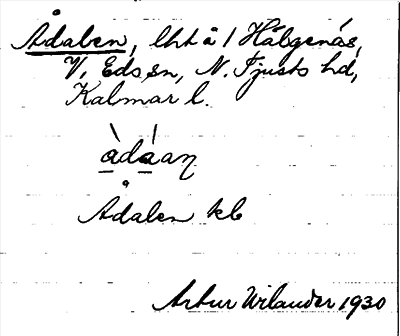 Ådalen, lht å / Hälgenäs,
V. Eds sn, N. Tjusts hd,
Kalmar l.
àdáan
Ådalen kb
Artur Wilander 1930